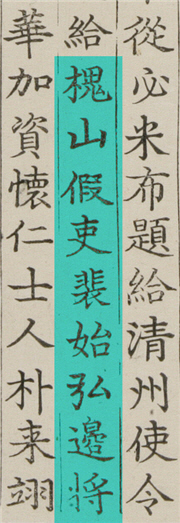 從必米布題給清州使令
給槐山假吏裴始弘邉将
華加資懷仁士人朴来翊